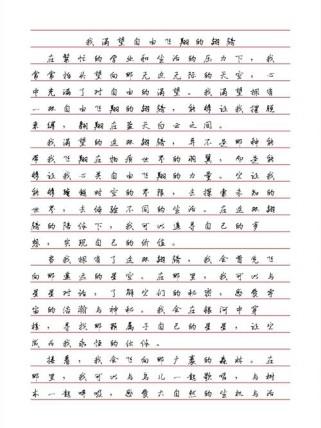 我渴望自由飞翔的翅膀
在繁忙的学业和生活的压力下，我
常常抬头望向那无边无际的天空，心
中充满了对自由的渴望。我渴望拥有
一双自由飞翔的翅膀，能够让我摆脱
束缚，翱翔在蓝天白云之间。
我渴望的这双翅膀，并不是那种能
带我飞翔在物质世界的羽翼，而是能
够让我心灵自由飞翔的力量。它让我
能够跨越时空的界限，去探索未知的
世界，去体验不同的生活。在这双翅
膀的陪伴下，我可以追寻自己的梦
想，实现自己的价值。
当我拥有了这双翅膀，我会首先飞
向那遥远的星空。在那里，我可以与
星星对话，了解它们的秘密，感受宇
宙的浩瀚与神秘。我会在银河中穿
梭，寻找那颗属于自己的星星，让它
成为我永恒的伙伴。
接着，我会飞向那广袤的森林。在
那里，我可以与鸟儿一起歌唱，与树
木一起呼吸，感受大自然的生机与活